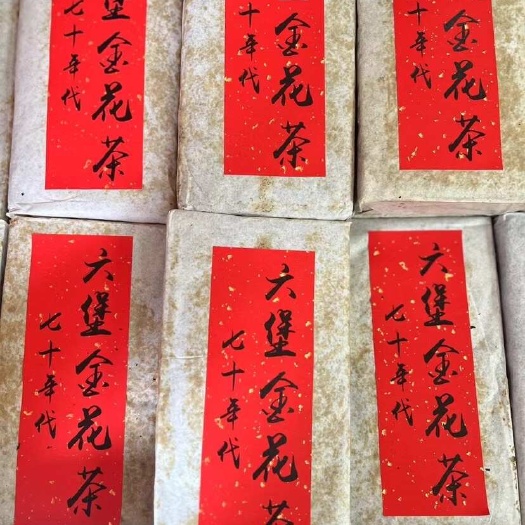 堡金花茶
七十年代
金花茶
十年代
金花茶
十年代
六堡金花茶
七十年代
六堡金花茶
七十年代
六堡金花茶
七十年代